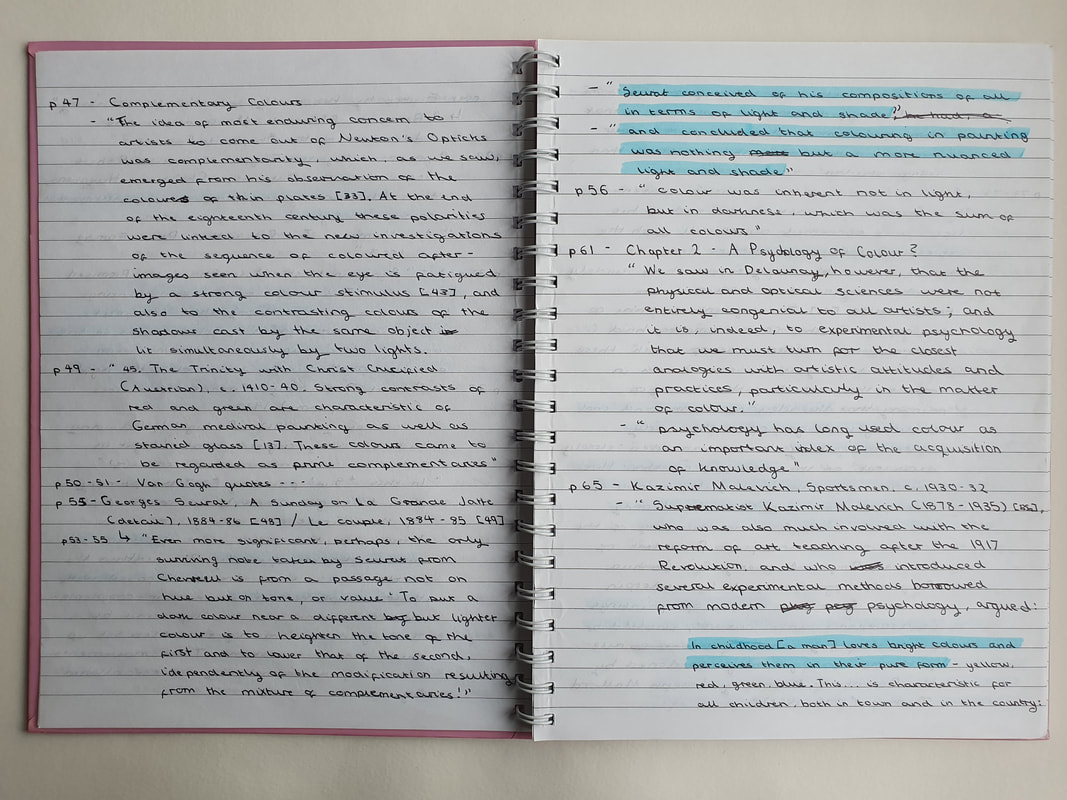 p47 - Complementary Colours
- "The idea of most enduring concern to
artists to come out of Newton's Opticks
was complementarity, which, as we saw,
emerged from his observation of the
colours of thin plates [33]. At the end
of the eighteenth century these polarities
were linked to the new investigations
of the sequence of coloured after-
images seen when the eye is fatigued
by a strong colour stimulus [43], and
also to the contrasting colours of the
shadows cast by the same object
lit simultaneously by two lights.
p49 - " 45. The Trinity with Christ Crucified
(Austrian), c. 1410-40. Strong contrasts of
red and green are characteristic of
German medival painting as well as
stainid glass [13]. These colours came to
be regarded as prime complementaries"
p50-51 - Van Gogh quotes - - - -
p55 - Georges Seurat, A Sunday on La Grande Jatte
(detail), 1884-86 [48] / Le couple, 1884-85 [49]
p53-55 ↳ "Even more significant, perhaps, the only
surviving note taken by Seurat from
Chevreul is from a passage not on
hue but on tone, or value ' To put a
dark colour near a different but lighter
colour is to heighten the tone of the
first and to lower that of the second,
idependently of the modification resulting
from the mixture of complementaries!'"
- " Seurat conceived of his compositions of all
in terms of light and shade"
- " and concluded that colouring in painting
was nothing but a more nuanced
light and shade"
p56 - " colour was inherent not in light,
but in darkness, which was the sum of
all colours"
p61 - Chapter 2 - A Psychology of Colour?
" We saw in Delaunay, however, that the
physical and optical sciences were not
entirely congenial to all artists; and
it is, indeed, to experimental psychology
that we must turn for the closest
analogies with artistic attitudes and
practices, particularly in the matter
of colour."
- " psychology has long used colour as
an important index of the acquisition
of knowledge"
p65 - Kazimir Malevich, Sportsmen, c. 1930-32
- " Suprematist Kazimir Malevich (1878-1935) [85],
who was also much involved with the
reform of art teaching after the 1917
Revolution, and who introduced
several experimental methods borrowed
from modern psychology, argued:
In childhood [a man] loves bright colours and
perceives them in their pure form - yellow,
red, green, blue. This... is characteristic for
all children, both in town and in the country: